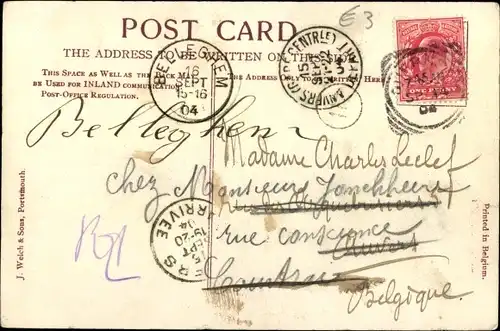 £3
POST CARD.
THE ADDRESS TO BE WRITTEN ON THIS SIDE
THIS SPACE AS WELL AS THE BACK MAY
BE USED FOR INLAND COMMUNICATION
POST-OFFICE REGULATION.
THE ADDRESS ONLY TO BE WRITTEN HERE
BELLEGHEM
16
SEPT
15-16
04
ANVERS (GARE CENTRALE)
SEPT
ONE PENNY
Belleghem
Madame Charles Leclef
chez Monsieur
rue conscience
Anvers
Courtrai
Belgique.
ARRIVEE
SEPT
J. Welch & Sons, Portsmouth.
Printed in Belgium.